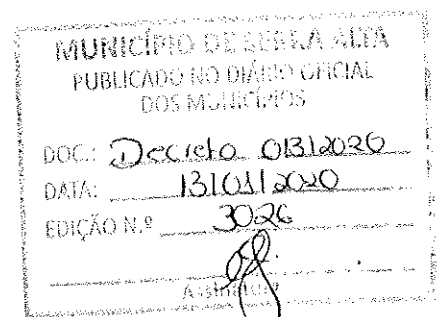 MUNICÍPIO DE SERRA ALTA
PUBLICADO NO DIÁRIO OFICIAL
DOS MUNICÍPIOS
DOC.: Decreto 013/2020
DATA: 13/01/2020
EDIÇÃO N.º 3026
Assinatura